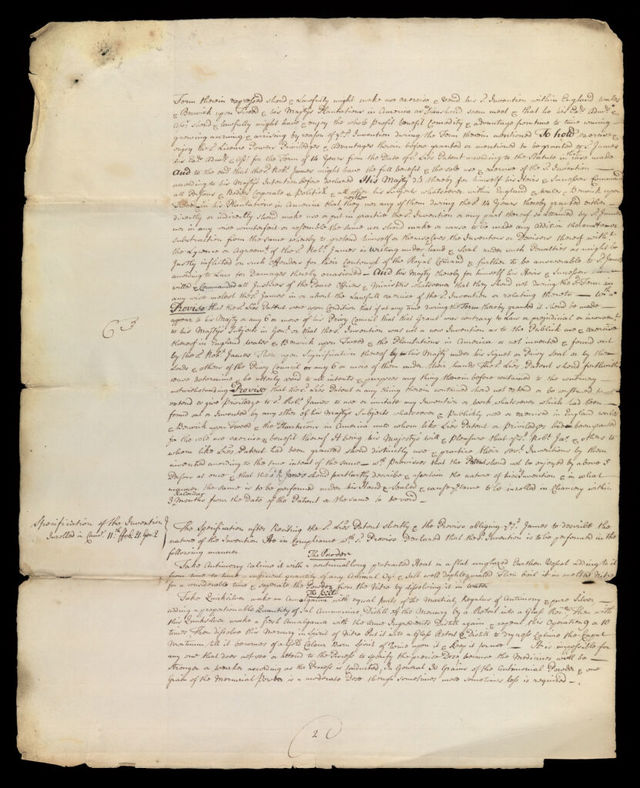 Term therein expressed should & Lawfully might make use exercise & vend his sd Invention within England Wales
& Berwick upon Tweed & his Majtys Plantations in America
should & Lawfully might have & enjoy the whole Profit benefit Comodity & Advantage from time to time coming
growing accruing & arising by reason of sd Invention during the Term therein mentioned To hold exercise &
enjoy the sd Licence Powers Priviledges & Advantages therein before granted or mentioned to be granted to sd James
his for the Term of 14 Years from the Date of sd Lres Patent according to the Statute in that case made
And to the end that the sd Robt James might have the full benefit & the sole use & exercise of the sd Invention
according to his Majtys Intention before declared His Majty did thereby for himself his Heirs & Successors Command
all Persons Bodies Politick & all other his Subjects whatsoever within England & Wales Berwick upon
Tweed or in his Plantations in America that neither they nor any of them during the sd 14 Years thereby granted either
directly or indirectly should make use or put in practice the sd Invention or any part thereof so attained by sd James
nor in any wise counterfeit or resemble the same nor should make or cause to be made any addition thereunto or
Substraction from the same whereby to pretend himself or themselves the Inventors or Devisors thereof without
the Lycence or Agreement of the sd Robt James in Writing under hand & Seal under such Penalties as might be
Justly inflicted on such offenders for their Contempt of the Royal Comand & further to be answerable to sd James
according to Law for Damages thereby occasioned And his Majty thereby for himself his Heirs & Successors
willed & Commanded all Justices of the Peace Officers & Ministers whatsoever that they should not during the sd Term in
any wise molest the sd James in or about the Lawfull exercise of the sd Invention or relating thereto
Proviso that the sd Lres Pattent were upon Condition that if at any time during the Term thereby granted it should be made
appear to his Majty or any 6 or more of his Privy Council that this Grant was contrary to Law or prejudicial or inconvent
to his Majtys Subjects in Genl or that the sd Invention was not a new Invention as to the Publick use & exercise
thereof in England Wales & Berwick upon Tweed & the Plantations in America or not invented & found out
by the sd Robt James Then upon Signification thereof by his Majty under his Signet or Privy Seal or by the
Lords & others of the Privy Council or any 6 or more of them under their hands the sd Lres Patent should forthwith
cease determine & be utterly void to all intents & purposes any thing therein before contained to the contrary
notwithstanding Proviso that sd Lres Patent or any thing therein contained should not extend or be construed to
extend to give Priviledge to sd Robt James to use or imitate any Invention or work whatsoever which had been
found out or Invented by any other of his Majtys Subjects whatsoever & Publickly used or exercised in England Wales
& Berwick upon Tweed & the Plantations in America unto whom like Lres Patent or Priviledges had been granted
for the sole use exercise & benefit thereof It being his Majestys will & Pleasure that sd Robt James & others to
whom like Lres Patent had been granted should distinctly use & practice their sevl Inventions by them
invented according to the true intent of the same
& that the sd James should particularly describe & ascertain the nature of his Invention & in what
manner the same is to be performed under his Hand & Seal & cause the same to be inrolled in Chancery within
Kalendar
Months from the Date of the Patent or the same to be void
63
Specification of the Invention
Inrolled in
The Specification after Reciting the sd Lres Patent shortly & the Proviso obliging sd James to describe the
nature of the Invention He in Compliance wth sd Proviso declared that the sd Invention is to be performed in the
following manner
The Powder
Take Antimony calcine it with a continual long protracted Heat in a flat unglazed Earthen Vessel adding to it
from time to time a sufficient quantity of any Animal Oyl & Salt well dephlegmated Then boil it in melted Nitre
for a considerable time & separate the Powder from the Nitre by dissolving it in water
The Pill
Take Quicksilver make an Amalgama with equal parts of the Martial Regulus of Antimony & pure Silver
adding a proportionable Quantity of Sal Ammoniac Distill of the Mercury by a Retort into a Glass Receiver Then with
this Quicksilver make a fresh Amalgama with the same Ingredients Distill again & repeat this Operation 9 or 10
times Then dissolve this Mercury in Spirit of Nitre Put it into a Glass Retort & Distill to dryness Calcine the Caput
Mortuum till it becomes of a Gold Colour Burn Spirit of Wine upon it & keep it for use It is impossible for
any one that does not see & attend to the Process to specify the precise Dose because the Medicines will be
Stronger or weaker according as the Process is conducted In General 30 Grains of the Antimonial Powder & one
Grain of the Mercurial Powder is a moderate Dose though sometimes more sometimes less is required
2